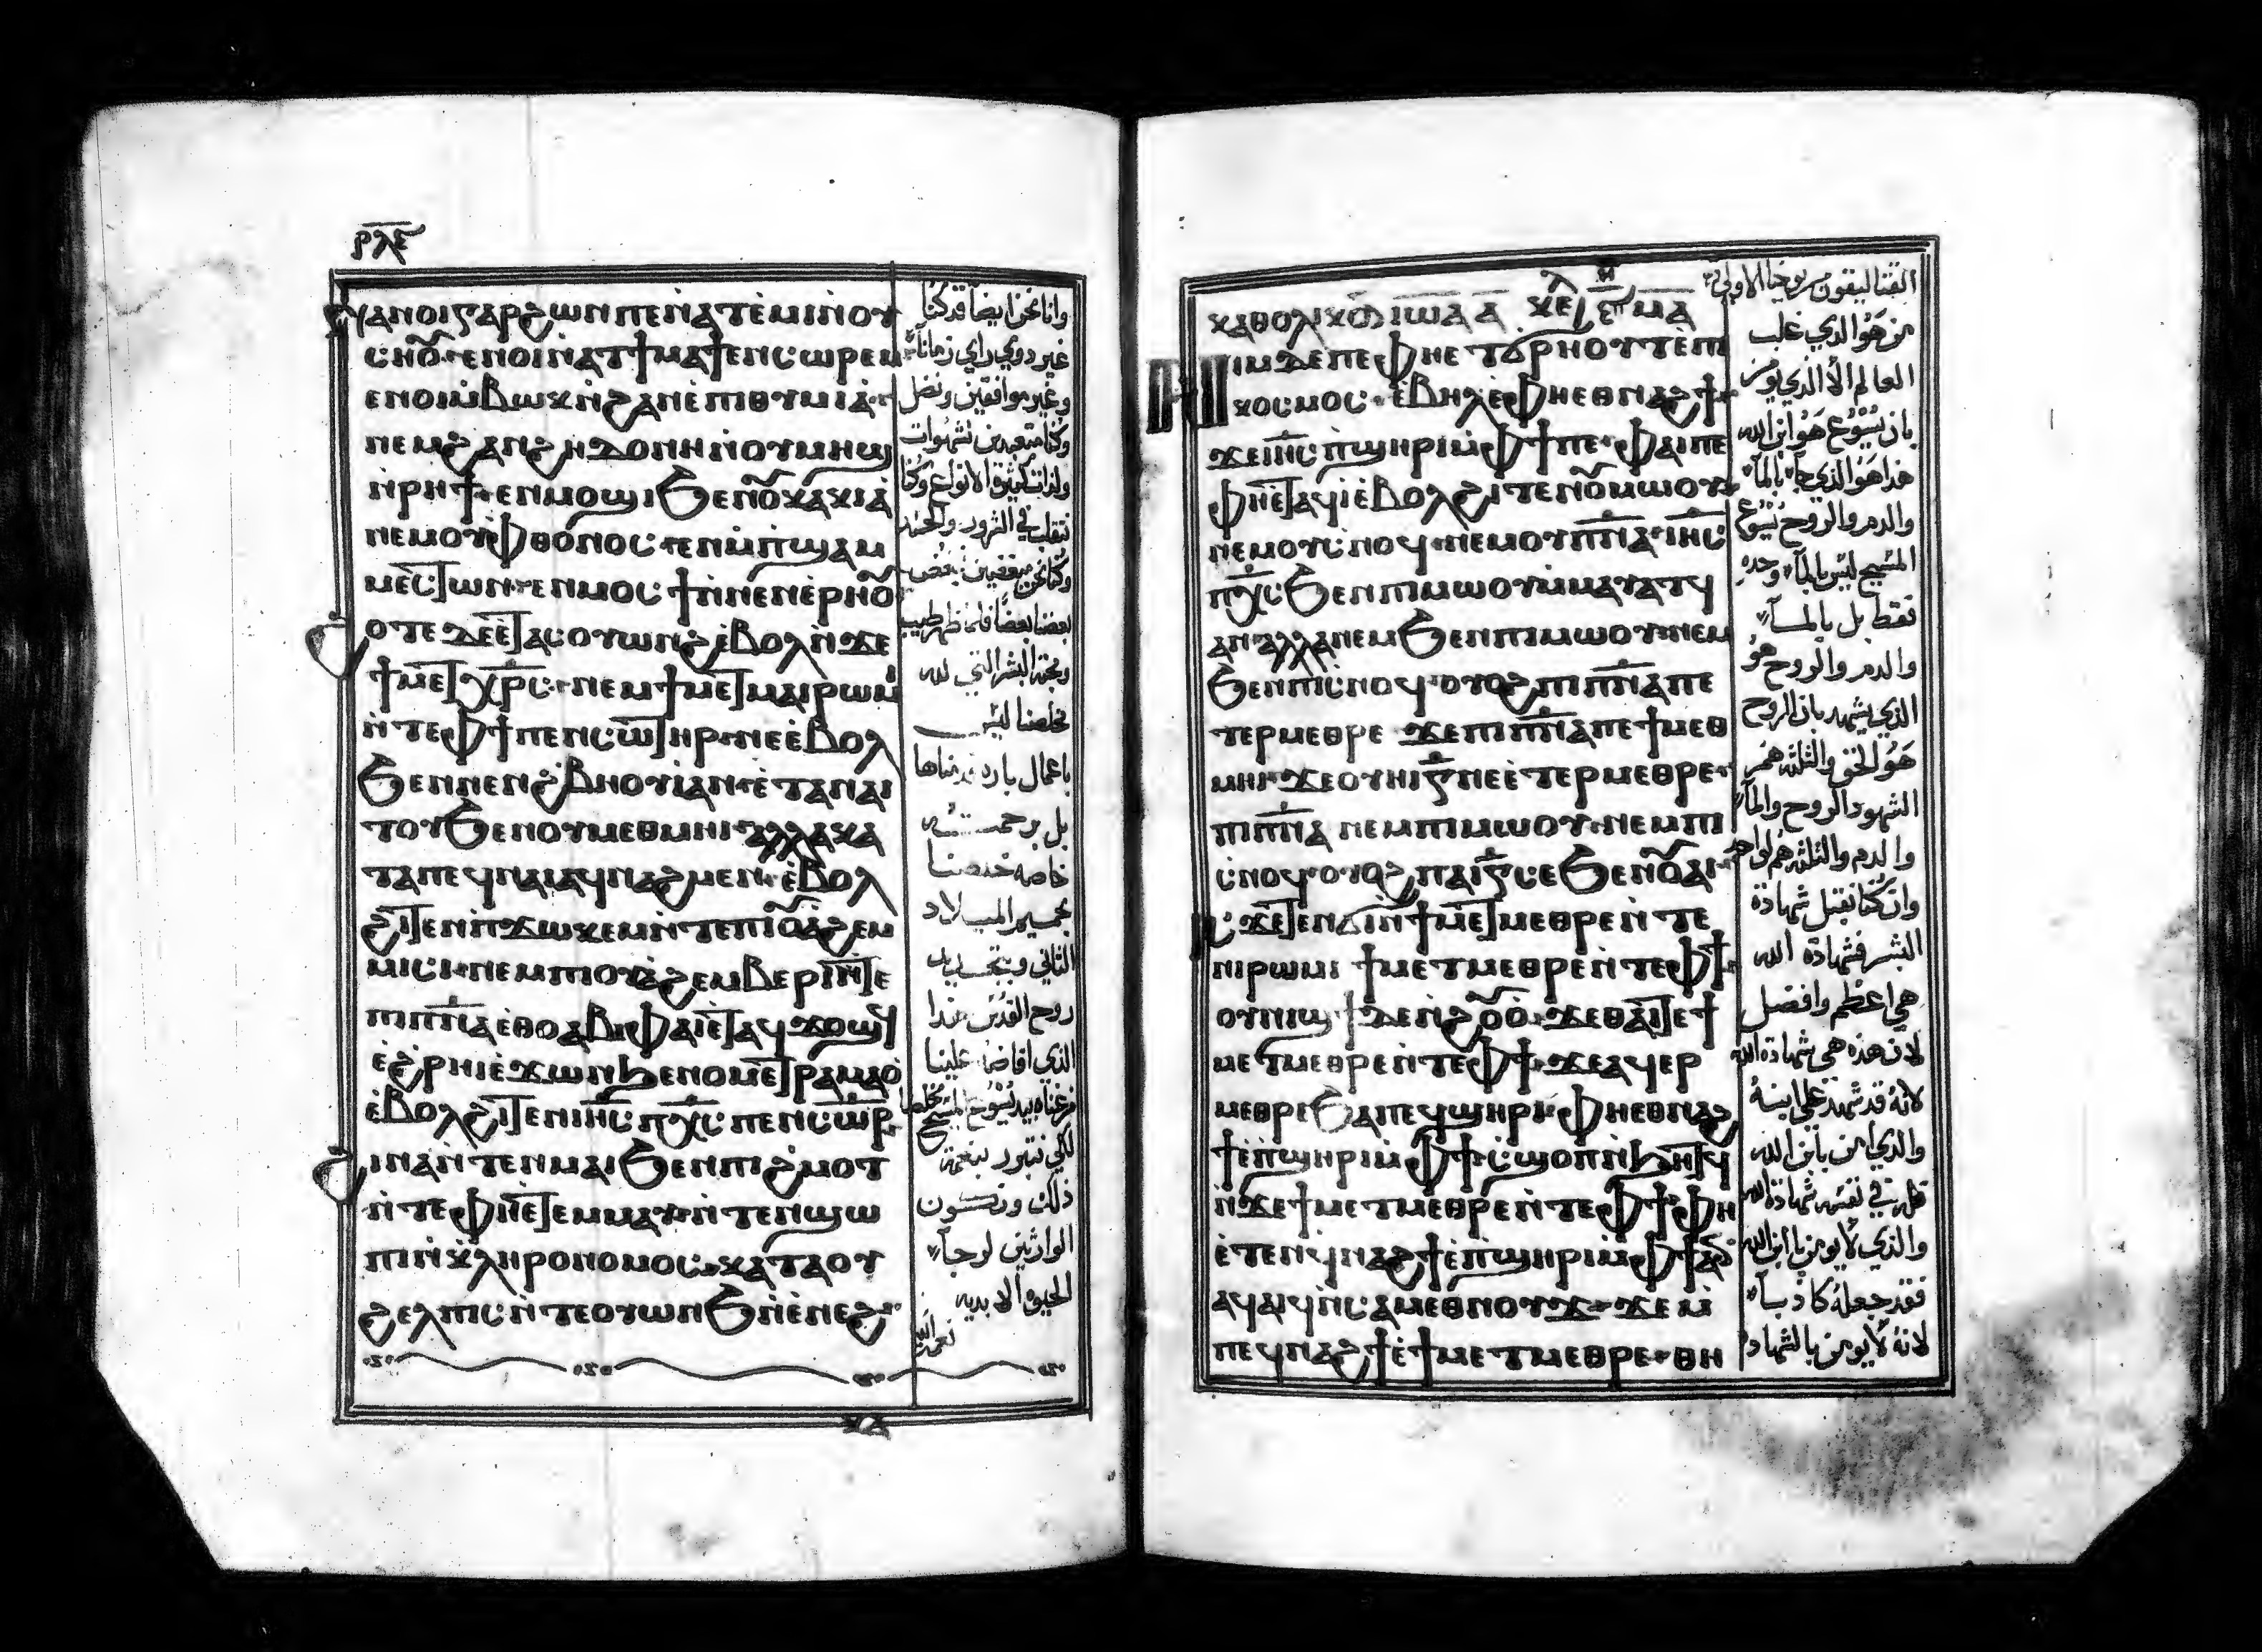 ⲣⲗⲉ
ⲛⲁⲛⲟⲓ ⲅⲁⲣ ϩⲱⲛ ⲡⲉ ⲛ̀ⲁⲧⲉⲙⲓ ⲛ̀ⲟⲩ
ⲥⲏⲟ̅ⲩ· ⲉⲛⲟⲓ ⲛ̀ⲁⲧϯⲙⲁϯ ⲉⲛⲥⲱⲣⲉⲙ
ⲉⲛⲟⲓ ⲙ̀ⲃⲱⲕ ⲛ̀ϩⲁⲛⲉ̀ⲡⲓⲑⲩⲙⲓⲁ·
ⲛⲉⲙ ϩⲁⲛϩⲏⲇⲟⲛⲏ ⲛ̀ⲟⲩⲙⲏϣ
ⲛ̀ⲣⲏϯ· ⲉⲛⲙⲟϣⲓ ϧⲉⲛ ⲟ̅ⲩⲕⲁⲕⲓⲁ
ⲛⲉⲙ ⲟⲩⲫⲑⲟⲛⲟⲥ· ⲉⲛⲙ̀ⲡϣⲁ ⲙ
ⲙⲉⲥⲧⲱⲛ· ⲉⲛⲙⲟⲥϯ ⲛ̀ⲛⲉⲛⲉ̀ⲣⲏⲟ̅ⲩ
ϩⲟⲧⲉ ϫⲉ ⲉ̀ⲧⲁⲥⲟⲩⲱⲛϩ ⲉ̀ⲃⲟⲗ ⲛ̀ϫⲉ
ϯⲙⲉⲧⲭⲣⲥ· ⲛⲉⲙ ϯⲙⲉⲧⲙⲁⲓⲣⲱⲙⲓ
ⲛ̀ⲧⲉ ⲫϯ ⲡⲉⲛⲥⲱⲧⲏⲣ· ⲛⲉ ⲉ̀ⲃⲟⲗ
ϧⲉⲛ ⲛⲉⲛϩ̀ⲃⲏⲟⲩⲓ̀ ⲁⲛ· ⲉ̀ⲧⲁⲛⲁⲓ
ⲧⲟⲩ ϧⲉⲛ ⲟⲩⲙⲉⲑⲙⲏⲓ· ⲁⲗⲗⲁ ⲕⲁ
ⲧⲁ ⲡⲉϥⲛⲁⲓ ⲁϥⲛⲁϩⲙⲉⲛ· ⲉ̀ⲃⲟⲗ
ϩⲓⲧⲉⲛ ⲡ̀ϫⲱⲕⲉⲙ ⲛ̀ⲧⲉ ⲡⲓⲟ̅ⲩⲁϩⲉⲙ
ⲙⲓⲥⲓ· ⲛⲉⲙ ⲡⲓⲟⲩⲁϩⲉⲙⲃⲉⲣⲓ ⲛ̀ⲧⲉ
ⲡⲓⲡⲛⲁ ⲉⲑⲟⲩⲁⲃ· ⲫⲁⲓ ⲉ̀ⲧⲁϥϫⲟϣϥ
ⲉ̀ϩⲣⲏⲓ ⲉ̀ϫⲱⲛ ϧⲉⲛ ⲟⲩⲙⲉⲧⲣⲁⲙⲁⲟ̀
ⲉ̀ⲃⲟⲗϩⲓⲧⲉⲛ ⲓⲏⲥ ⲡⲭⲥ ⲡⲉⲛⲥⲱⲣ·
ϩⲓⲛⲁ ⲛ̀ⲧⲉⲛⲙⲁⲓ ϧⲉⲛ ⲡⲓϩ̀ⲙⲟⲧ
ⲛ̀ⲧⲉ ⲫⲏ ⲉ̀ⲧⲉⲙⲙⲁⲩ· ⲛ̀ⲧⲉⲛϣⲱ
ⲡⲓ ⲛ̀ⲕ̀ⲗⲏⲣⲟⲛⲟⲙⲟⲥ· ⲕⲁⲧⲁ ⲟⲩ
ϩⲉⲗⲡⲓⲥ ⲛ̀ⲧⲉ ⲟⲩⲱⲛϧ ⲛ̀ⲉ̀ⲛⲉϩ·
وانا نحن ايضا قد كنا
غير ذوي راي زمانا
وغير موافقين ونضل
وكنا متعبدين لشهوات
ولذات كثيرة الانواع وكنا
نتقلب في الشرور والحسد
وكنا نحن مبغضين نبغض
بعضنا بعضا فلما ظهر طيب
ومحبة البشر التي لله
مخلصنا ليس
باعمال باره قدمناها
بل برحمته
خاصه خلصنا
بحميم الميلاد
الثاني وبتجديد
روح القدس هذا
الذي افاضه علينا
من غناه بيد يسوع المسيح مخلصنا
لكي نتبرر بنعمة
ذلك ونكون
الوارثين لرجاء
الحيوة الابديه
نعمة الله
ⲕⲁⲑⲟⲗⲓⲕⲟⲛ ⲓⲱⲁ ⲁ̅ ⲕⲉ ⲉ̅ ⲙⲁ̅
ⲛⲓⲙ ⲇⲉ ⲡⲉ ⲫⲏ ⲉⲧϭⲣⲏⲟⲩⲧ ⲉ̀ⲡⲓ
ⲕⲟⲥⲙⲟⲥ· ⲉ̀ⲃⲏⲗ ⲉ̀ⲫⲏ ⲉⲑⲛⲁϩϯ
ϫⲉ ⲓⲏⲥ ⲡ̀ϣⲏⲣⲓ ⲙ̀ⲫϯ ⲡⲉ· ⲫⲁⲓ ⲡⲉ
ⲫⲏ ⲉ̀ⲧⲁϥⲓ̀ ⲉ̀ⲃⲟⲗϩⲓⲧⲉⲛ ⲟ̅ⲩⲙⲱⲟⲩ
ⲛⲉⲙ ⲟⲩⲥⲛⲟϥ· ⲛⲉⲙ ⲟⲩⲡⲛⲁ· ⲓⲏⲥ
ⲡⲭⲥ ϧⲉⲛ ⲡⲓⲙⲱⲟⲩ ⲙ̀ⲙⲁⲩⲁⲧϥ
ⲁⲛ· ⲁⲗⲗⲁ ⲛⲉⲙ ϧⲉⲛ ⲡⲓⲙⲱⲟⲩ· ⲛⲉⲙ
ϧⲉⲛ ⲡⲓⲥⲛⲟϥ· ⲟⲩⲟϩ ⲡⲓⲡⲛⲁ ⲡⲉ
ⲧⲉⲣⲙⲉⲑⲣⲉ ϫⲉ ⲡⲓⲡⲛⲁ ⲡⲉ ϯⲙⲉⲑ
ⲙⲏⲓ· ϫⲉ ⲟⲩⲏⲓ ⲅ̅ ⲛⲉ ⲉ̀ⲧⲉⲣⲙⲉⲑⲣⲉ·
ⲡⲓⲡⲛⲁ ⲛⲉⲙ ⲡⲓⲙⲱⲟⲩ· ⲛⲉⲙ ⲡⲓ
ⲥ̀ⲛⲟϥ· ⲟⲩⲟϩ ⲡⲁⲓ ⲅ̅ ⲥⲉ ϧⲉⲛ ⲟ̅ⲩⲁⲓ·
ⲓⲥϫⲉ ⲧⲉⲛϭⲓ ⲛ̀ϯⲙⲉⲧⲙⲉⲑⲣⲉ ⲛ̀ⲧⲉ
ⲛⲓⲣⲱⲙⲓ ϯⲙⲉⲧⲙⲉⲑⲣⲉ ⲛ̀ⲧⲉ ⲫϯ·
ⲟⲩⲛⲓϣϯ ϫⲉ ⲛ̀ϩⲟ̅ⲩⲟ̀· ϫⲉ ⲑⲁⲓ ⲧⲉ ϯ
ⲙⲉⲧⲙⲉⲑⲣⲉ ⲛ̀ⲧⲉ ⲫϯ· ϫⲉ ⲁϥⲉⲣ
ⲙⲉⲑⲣⲉ ϧⲁ ⲡⲉϥϣⲏⲣⲓ· ⲫⲏ ⲉⲑⲛⲁϩ
ϯ ⲉ̀ⲡ̀ϣⲏⲣⲓ ⲙ̀ⲫϯ ⲥ̀ϣⲟⲡ ⲛ̀ϧⲏⲧϥ
ⲛ̀ϫⲉ ϯⲙⲉⲧⲙⲉⲑⲣⲉ ⲛ̀ⲧⲉ ⲫϯ· ⲫⲏ
ⲉ̀ⲧⲉⲛϥ̀ⲛⲁϩϯ ⲉ̀ⲡ̀ϣⲏⲣⲓ ⲙ̀ⲫϯ ⲁⲛ
ⲁϥⲁⲓϥ ⲛ̀ⲥⲁⲙⲉⲑⲛⲟⲩϫ· ϫⲉ ⲙ̀
ⲡⲉϥⲛⲁϩϯ ⲉ̀ϯⲙⲉⲧⲙⲉⲑⲣⲉ· ⲑⲏ
القتاليقون من يوحنا الاولى
من هو الذي غلب
العالم الا الذي يومن
بان يسوع هو ابن الله
هذا هو الذي جاء بالماء
والدم والروح يسوع
المسيح ليس بالماء وحده
فقط بل بالماء
والدم والروح هو
الذي يشهد بان الروح
هو الحق والثلثه هم
الشهود الروح والماء
والدم والثلثه هم لواحد
وان كنا نقبل شهادة
البشر فشهادة الله
هي اعظم وافضل
لان هذه هي شهادة الله
لانه قد شهد على ابنه
والذي امن بابن الله
فله في نفسه شهادة الله
والذي لا يومن بابن الله
فقد جعله كاذبا
لانه لا يومن بالشهادة